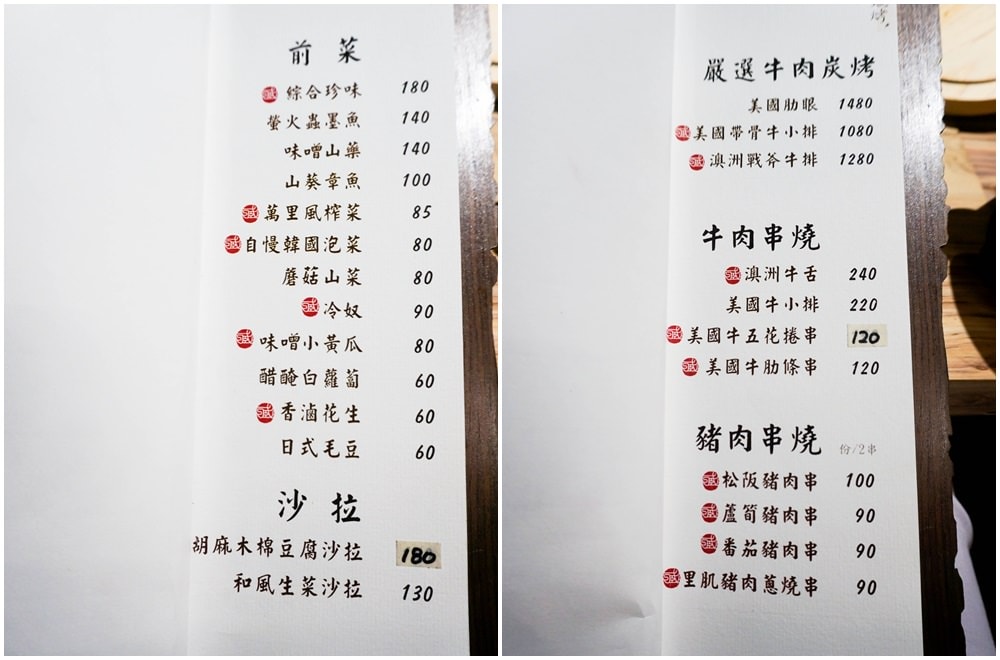 前菜
綜合珍味 180
螢火蟲墨魚 140
味噌山藥 140
山葵章魚 100
萬里風榨菜 85
自慢韓國泡菜 80
蘑菇山菜 80
冷奴 90
味噌小黃瓜 80
醋醃白蘿蔔 60
香滷花生 60
日式毛豆 60
沙拉
胡麻木棉豆腐沙拉 180
和風生菜沙拉 130
烤
嚴選牛肉炭烤
美國肋眼 1480
美國帶骨牛小排 1080
澳洲戰斧牛排 1280
牛肉串燒
澳洲牛舌 240
美國牛小排 220
美國牛五花捲串 120
美國牛肋條串 120
豬肉串燒 份/2串
松阪豬肉串 100
蘆筍豬肉串 90
番茄豬肉串 90
里肌豬肉蔥燒串 90